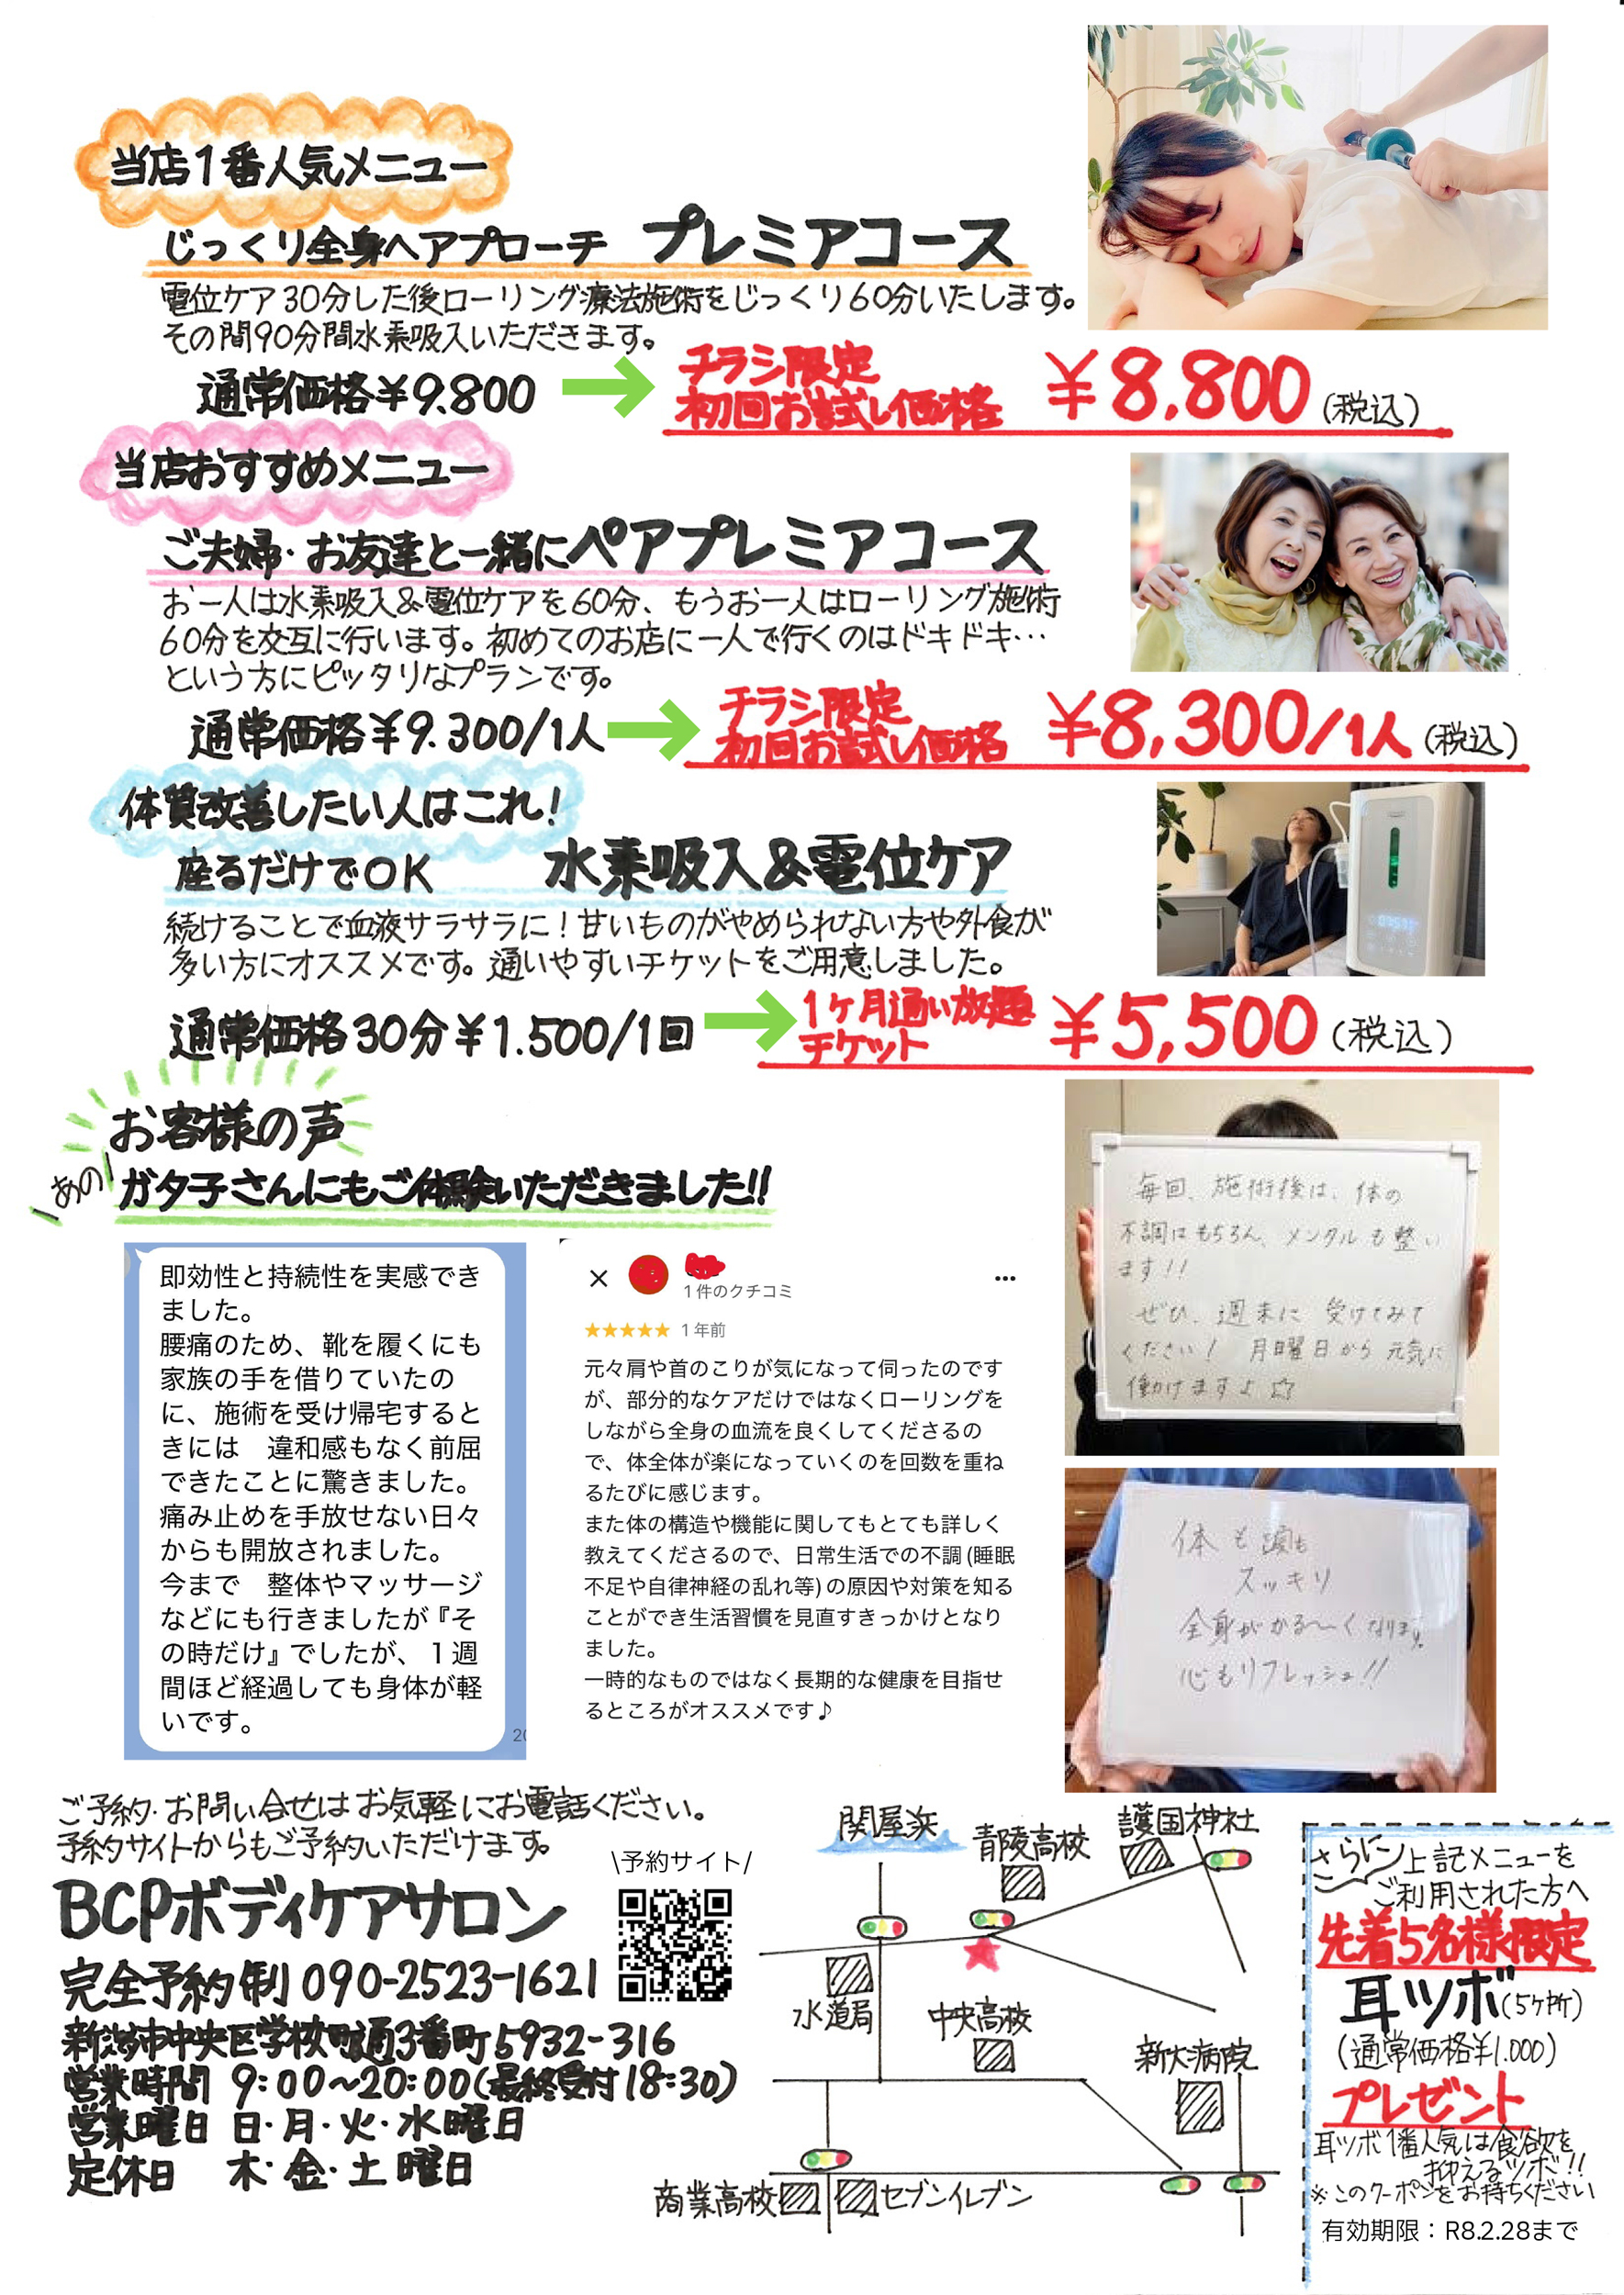 当店1番人気メニュー
じっくり全身へアプローチ プレミアコース
電位ケア30分した後ローリング療法施術をじっくり60分いたします。
その間90分間水素吸入いただきます。
通常価格¥9.800
チラシ限定
初回お試し価格 ¥8,800(税込)
当店おすすめメニュー
ご夫婦・お友達と一緒にペアプレミアコース
お一人は水素吸入&電位ケアを60分、もうお一人はローリング施術
60分を交互に行います。初めてのお店に一人で行くのはドキドキ…
という方にピッタリなプランです。
通常価格¥9.300/1人
チラシ限定
初回お試し価格 ¥8,300/1人(税込)
体質改善したい人はこれ!
座るだけでOK 水素吸入&電位ケア
続けることで血液サラサラに!甘いものがやめられない方や外食が
多い方にオススメです。通いやすいチケットをご用意しました。
通常価格30分¥1.500/1回
1ヶ月通い放題
チケット ¥5,500(税込)
お客様の声
\あの/ ガタ子さんにもご体験いただきました!!
即効性と持続性を実感でき
ました。
腰痛のため、靴を履くにも
家族の手を借りていたの
に、施術を受け帰宅すると
きには 違和感もなく前屈
できたことに驚きました。
痛み止めを手放せない日々
からも開放されました。
今まで 整体やマッサージ
などにも行きましたが『そ
の時だけ』でしたが、1週
間ほど経過しても身体が軽
いです。
1件のクチコミ
★★★★★ 1年前
元々肩や首のこりが気になって伺ったのです
が、部分的なケアだけではなくローリングを
しながら全身の血流を良くしてくださるの
で、体全体が楽になっていくのを回数を重ね
るたびに感じます。
また体の構造や機能に関してもとても詳しく
教えてくださるので、日常生活での不調(睡眠
不足や自律神経の乱れ等)の原因や対策を知る
ことができ生活習慣を見直すきっかけとなり
ました。
一時的なものではなく長期的な健康を目指せ
るところがオススメです♪
毎回、施術後は、体の
不調はもちろん、メンタルも整い
ます!!
ぜひ、週末に受けてみて
ください! 月曜日から元気に
働けますよ☆
体も頭も
スッキリ
全身がかる〜くなります。
心もリフレッシュ!!
ご予約・お問い合せはお気軽にお電話ください。
予約サイトからもご予約いただけます。
\予約サイト/
BCPボディケアサロン
完全予約制 090-2523-1621
新潟市中央区学校町通3番町5932-316
営業時間 9:00〜20:00(最終受付18:30)
営業曜日 日・月・火・水曜日
定休日 木・金・土曜日
関屋浜
青陵高校
護国神社
水道局
中央高校
新大病院
商業高校
セブンイレブン
さらに 上記メニューを
ご利用された方へ
先着5名様限定
耳ツボ(5ヶ所)
(通常価格¥1.000)
プレゼント
耳ツボ1番人気は食欲を
抑えるツボ!!
※このクーポンをお持ちください
有効期限:R8.2.28まで